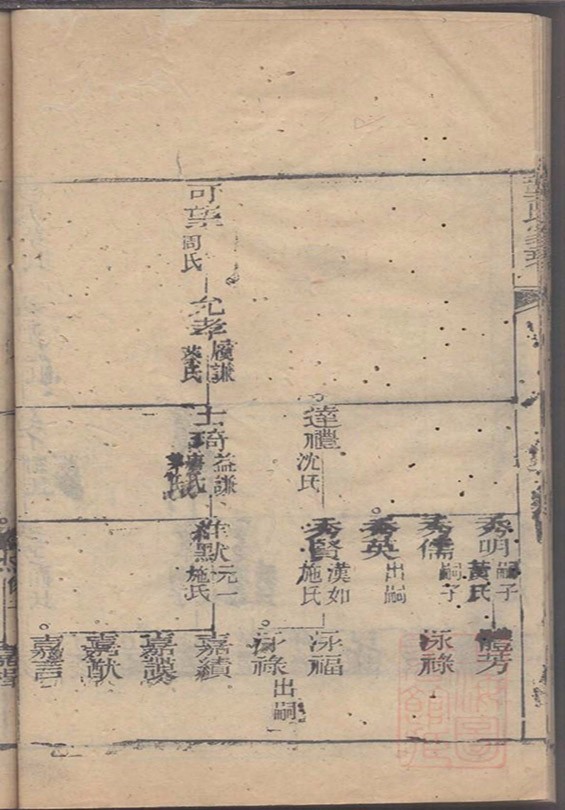 可葉
周氏
允孝
履謙
士琦
益謙
達禮
沈氏
秀明
嗣子
黃氏
秀儒
嗣子
秀英
出嗣
秀賢
漢如
施氏
維默
元一
施氏
體芳
泳祿
泳福
泳祿
出嗣
嘉績
嘉謨
嘉猷
嘉言